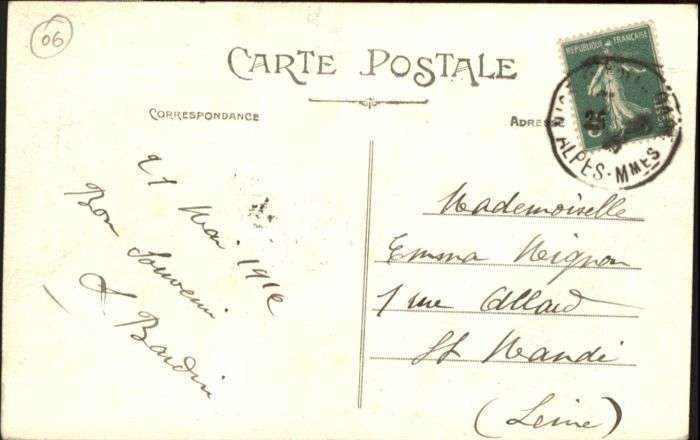 06
CARTE POSTALE
CORRESPONDANCE
ADRESSE
REPUBLIQUE FRANÇAISE
ALPES-MMES
25
21 Mai 1912
Bon Souvenir
L Bardin
Mademoiselle
Emma Mignon
1 rue Allard
St Mandé
(Seine)